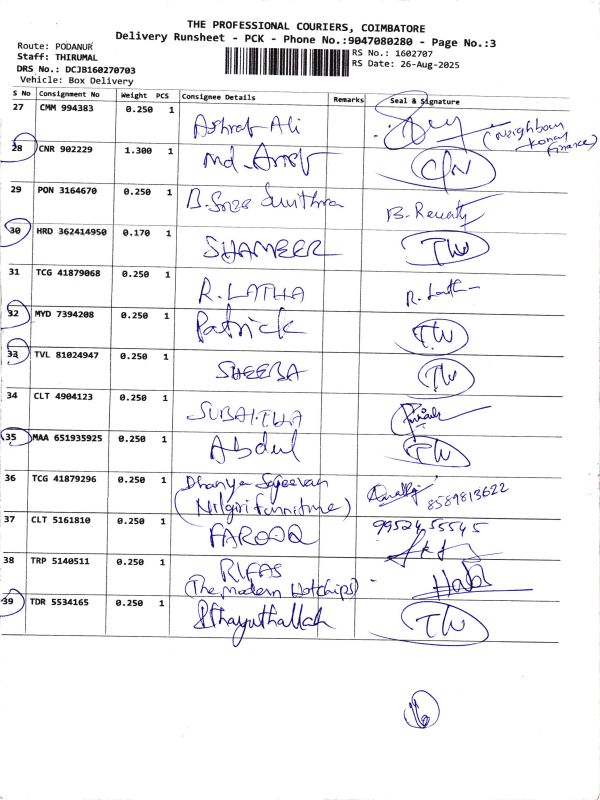 THE PROFESSIONAL COURIERS, COIMBATORE
Delivery Runsheet - PCK - Phone No.:9047080280 - Page No.:3
Route: PODANUR
Staff: THIRUMAL
DRS No.: DCJB160270703
Vehicle: Box Delivery
RS No.: 1602707
RS Date: 26-Aug-2025
S No Consignment No Weight PCS Consignee Details Remarks Seal & Signature
27 CMM 994383 0.250 1 Ashraf Ali (Neighbour
28 CNR 902229 1.300 1 Md. C/N
29 PON 3164670 0.250 1 B. B. Revathy
30 HRD 362414950 0.170 1 SHAMEER TW
31 TCG 41879068 0.250 1 R. LATHA R. Lath
32 MYD 7394208 0.250 1 Patrick TW
33 TVL 81024947 0.250 1 SHEEBA TW
34 CLT 4904123 0.250 1 SUBAITHA
35 MAA 651935925 0.250 1 Abdul TW
36 TCG 41879296 0.250 1 Dhanya Sajeevan
(Nilgiri furniture) 8589813622
37 CLT 5161810 0.250 1 FAROOQ 9952455545
38 TRP 5140511 0.250 1 RIFAS
(The modern Hotchips)
39 TDR 5534165 0.250 1 TW